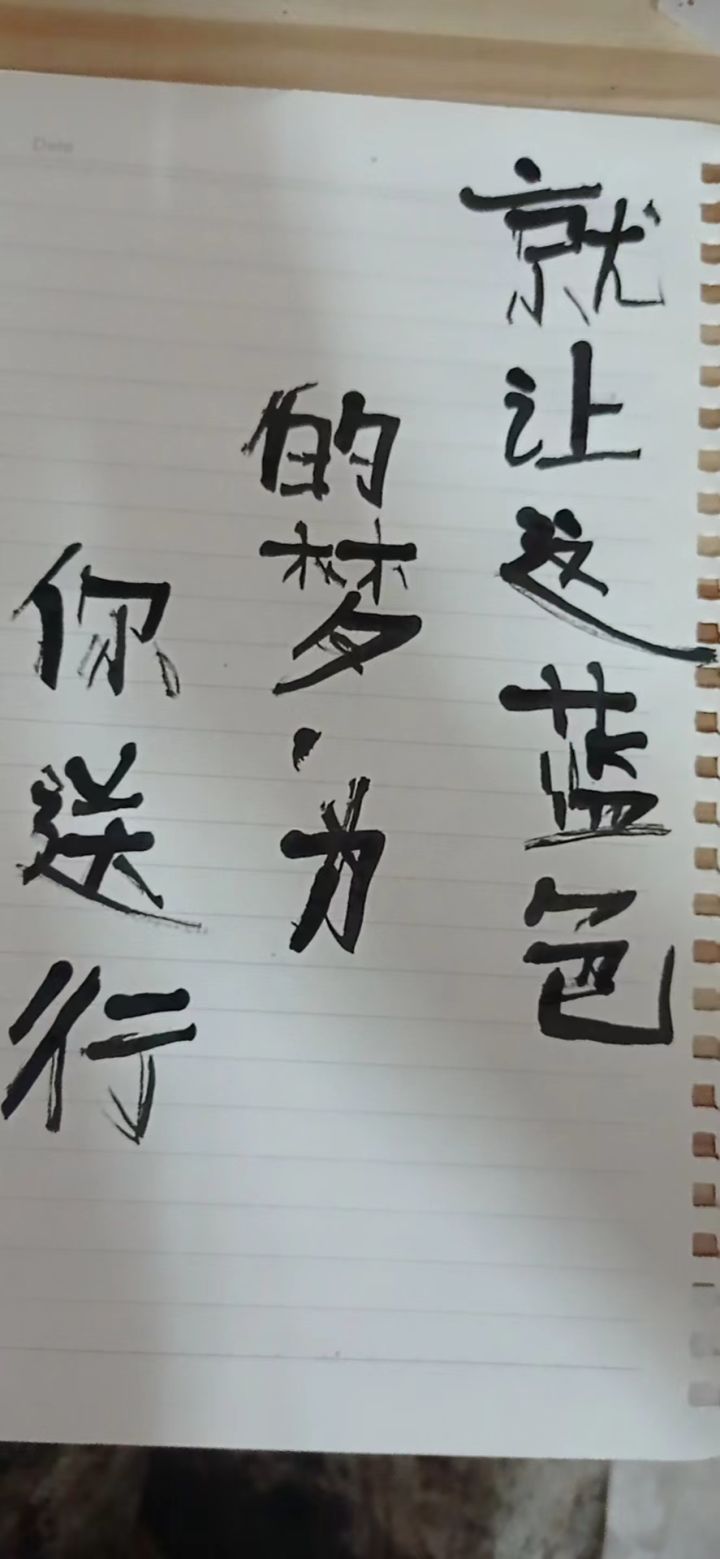 就让这蓝色
的梦.为
你送行
Date